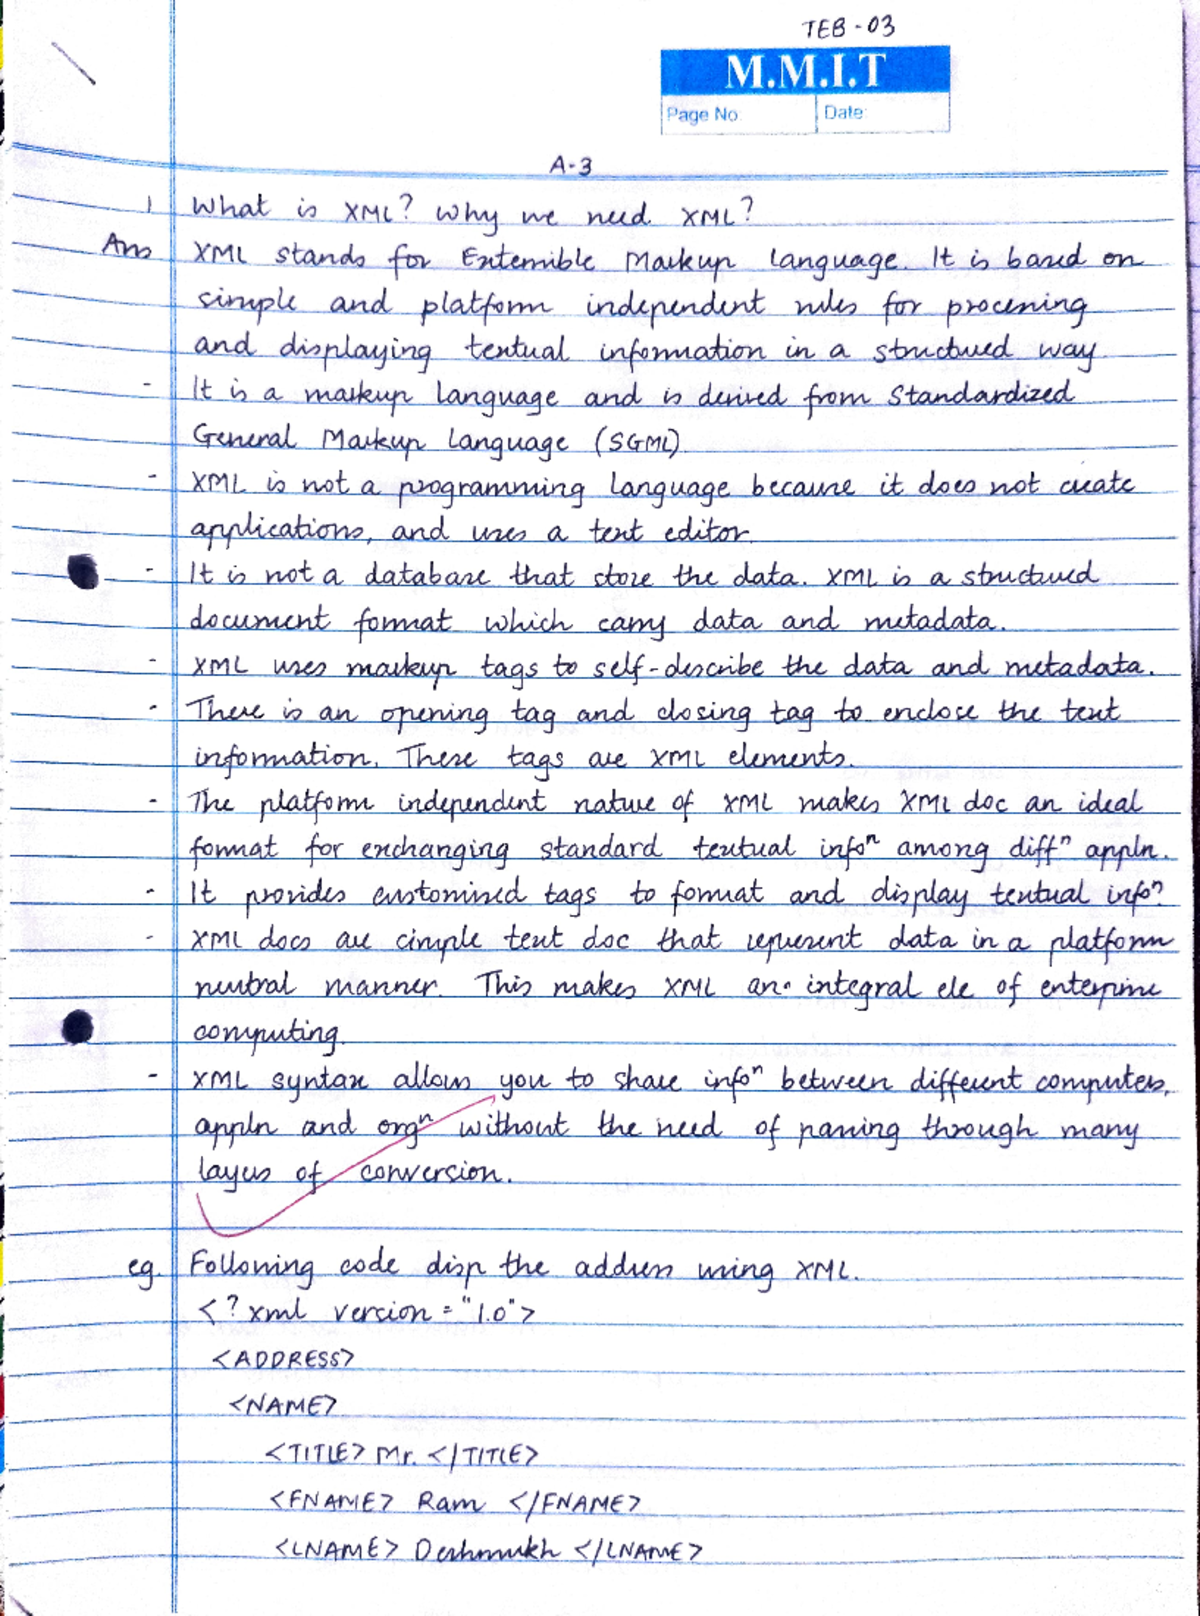 TEB-03
M.M.I.T
Page No. Date:
A-3
1 What is XML? Why we need XML?
Ans XML stands for Extensible Markup Language. It is based on
simple and platform independent rules for processing
and displaying textual information in a structured way.
- It is a markup language and is derived from Standardized
General Markup Language (SGML).
- XML is not a programming language because it does not create
applications, and uses a text editor.
- It is not a database that store the data. XML is a structured
document format which carry data and metadata.
- XML uses markup tags to self-describe the data and metadata.
- There is an opening tag and closing tag to enclose the text
information. These tags are XML elements.
- The platform independent nature of XML makes XML doc an ideal
format for exchanging standard textual infoⁿ among diffⁿ appln.
- It provides customised tags to format and display textual infoⁿ.
- XML docs are simple text doc that represent data in a platform
neutral manner. This makes XML an integral ele of enterprise
computing.
- XML syntax allows you to share infoⁿ between different computers,
appln and orgⁿ without the need of passing through many
layers of conversion.
eg. Following code disp the address using XML.
<?xml version = "1.0">
<ADDRESS>
<NAME>
<TITLE> Mr. </TITLE>
<FNAME> Ram </FNAME>
<LNAME> Deshmukh </LNAME>